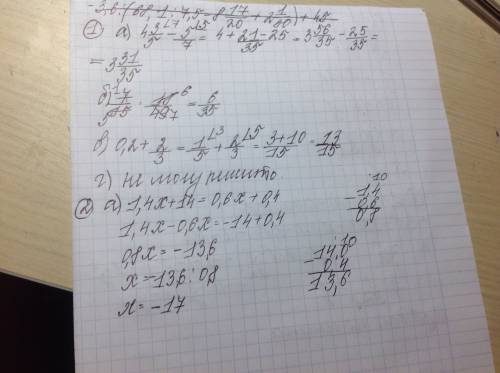 -3,6 · (60,1 : 7,5 - 8 17/20 + 2 1/30) + 45
① а) 4 3/5 - 5/7 = 4 + 21 - 25/35 = 3 56/35 - 25/35 =
= 3 31/35
б) 7/15 · 18/49 = 6/35
в) 0,2 + 2/3 = 1/5 + 2/3 = 3+10/15 = 13/15
г) не могу решить.
② а) 1,4x + 14 = 0,6x + 0,4
1,4x - 0,6x = -14 + 0,4
0,8x = -13,6
x = -13,6 : 0,8
x = -17
1,4
- 0,6
0,8
14,0
- 0,4
13,6